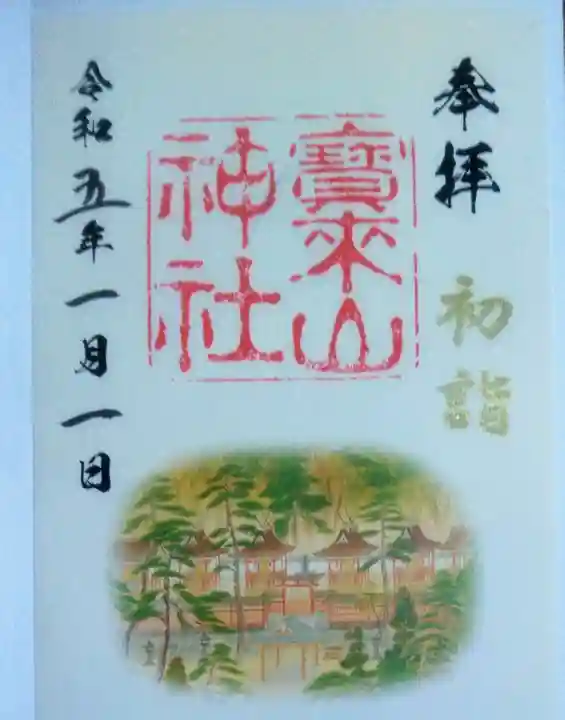 奉拝
初詣
寳來山
神社
令和五年一月一日